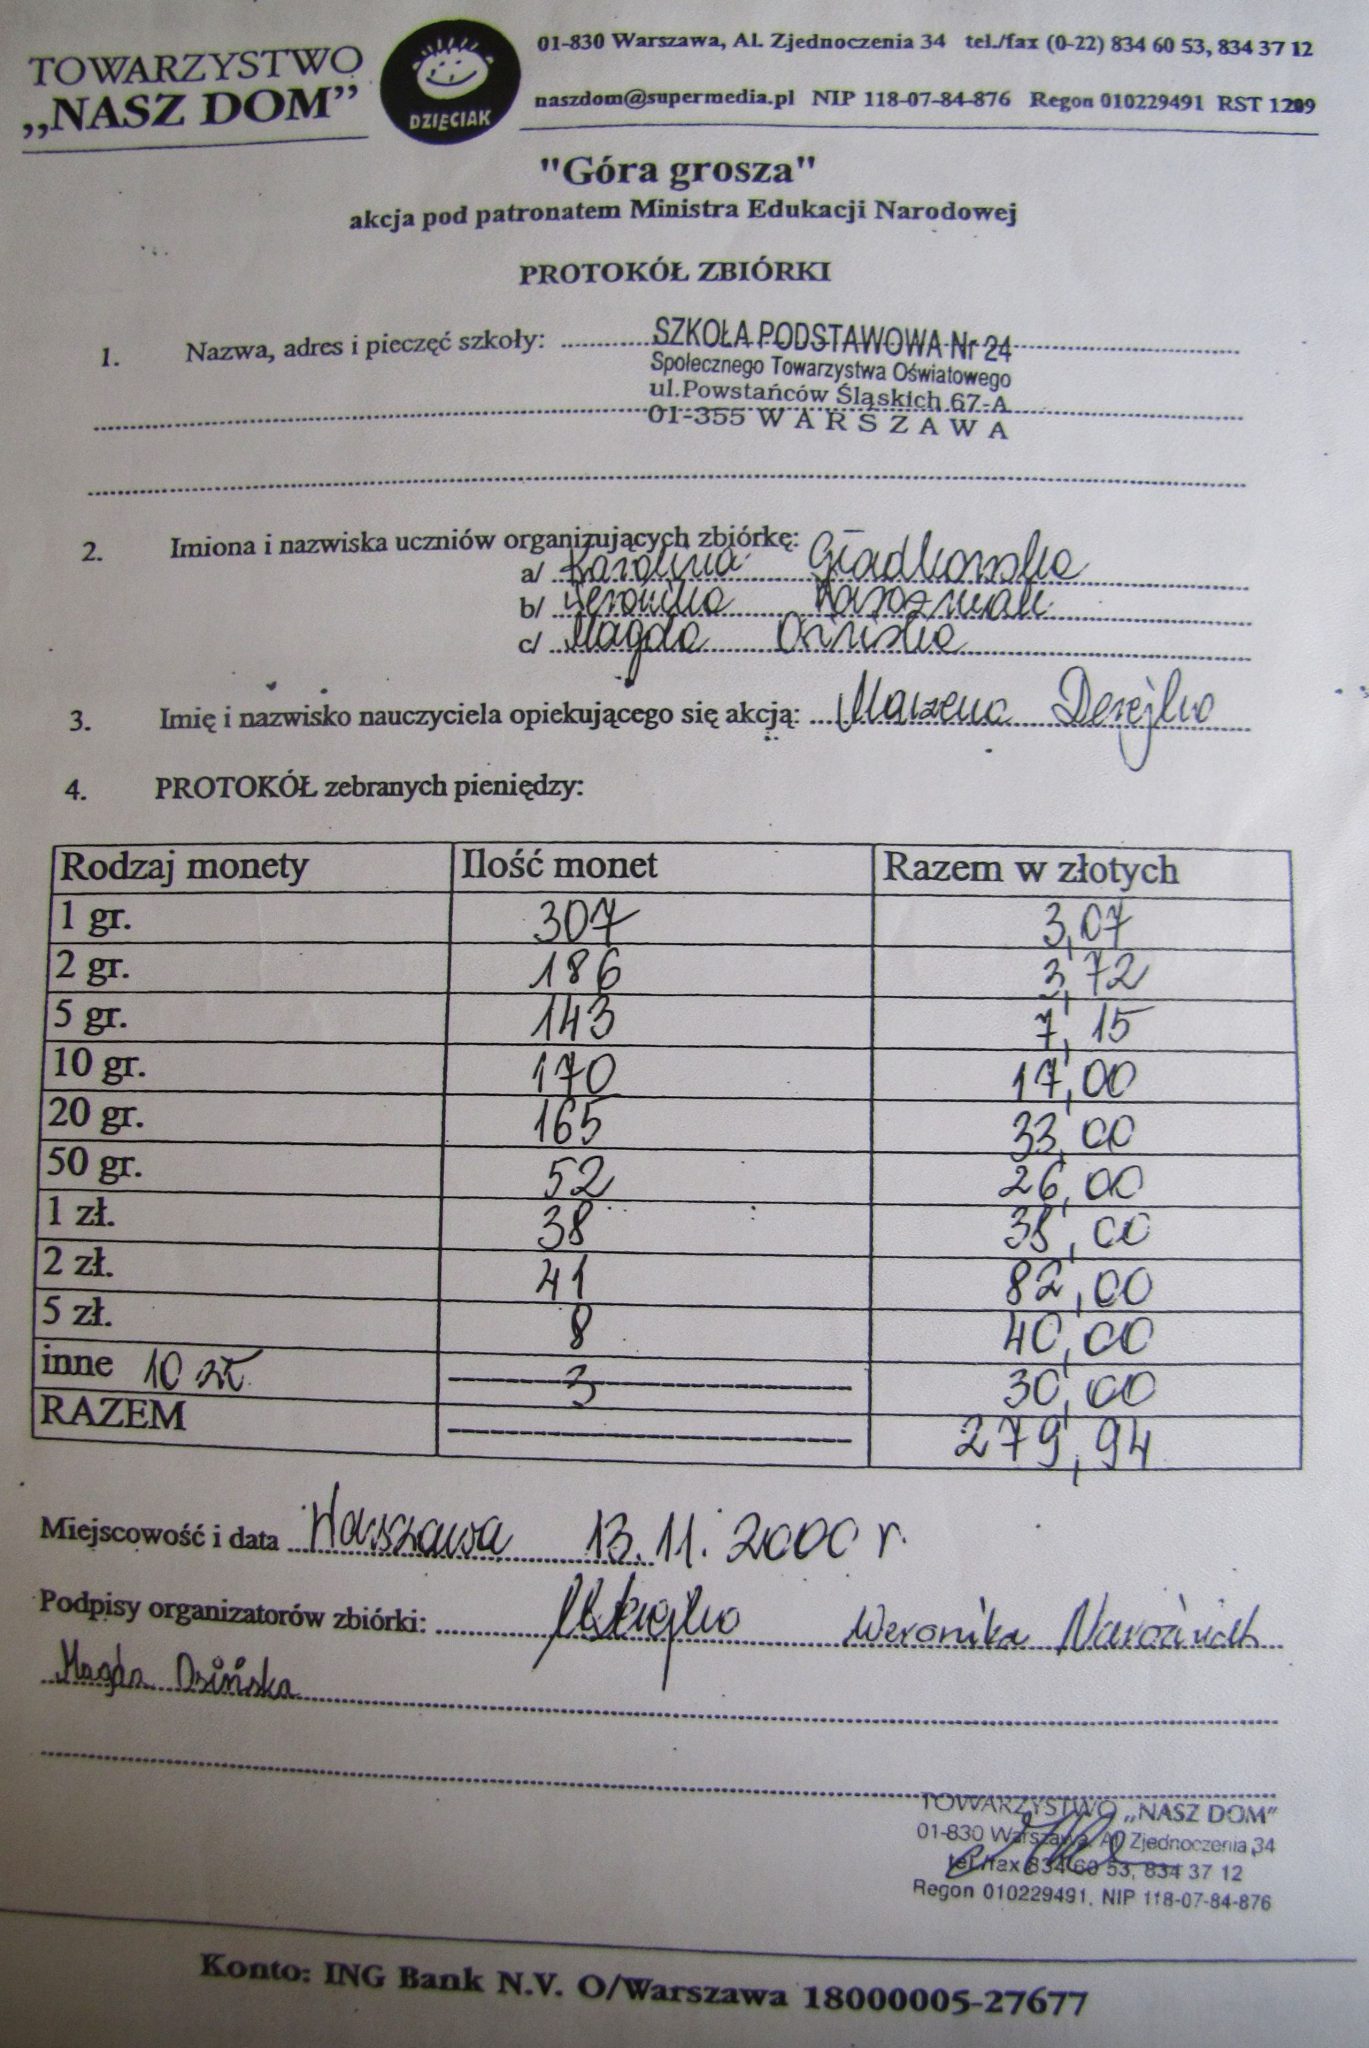 TOWARZYSTWO
„NASZ DOM”
DZIĘCIAK
01-830 Warszawa, Al. Zjednoczenia 34 tel./fax (0-22) 834 60 53, 834 37 12
naszdom@supermedia.pl NIP 118-07-84-876 Regon 010229491 RST 1209
"Góra grosza"
akcja pod patronatem Ministra Edukacji Narodowej
PROTOKÓŁ ZBIÓRKI
1. Nazwa, adres i pieczęć szkoły: SZKOŁA PODSTAWOWA Nr 24
Społecznego Towarzystwa Oświatowego
ul.Powstańców Śląskich 67-A
01-355 WARSZAWA
2. Imiona i nazwiska uczniów organizujących zbiórkę:
a/ Karolina Gładkowska
b/ Weronika
c/ Magda Osińska
3. Imię i nazwisko nauczyciela opiekującego się akcją: Marzena
4. PROTOKÓŁ zebranych pieniędzy:
Rodzaj monety Ilość monet Razem w złotych
1 gr. 307 3,07
2 gr. 186 3,72
5 gr. 143 7,15
10 gr. 170 17,00
20 gr. 165 33,00
50 gr. 52 26,00
1 zł. 38 38,00
2 zł. 41 82,00
5 zł. 8 40,00
inne 10 zł 3 30,00
RAZEM 279,94
Miejscowość i data Warszawa 13.11.2000 r.
Podpisy organizatorów zbiórki: Weronika Naroźniak
Magda Osińska
TOWARZYSTWO „NASZ DOM”
01-830 Warszawa, Al. Zjednoczenia 34
tel./fax 834 60 53, 834 37 12
Regon 010229491, NIP 118-07-84-876
Konto: ING Bank N.V. O/Warszawa 18000005-27677